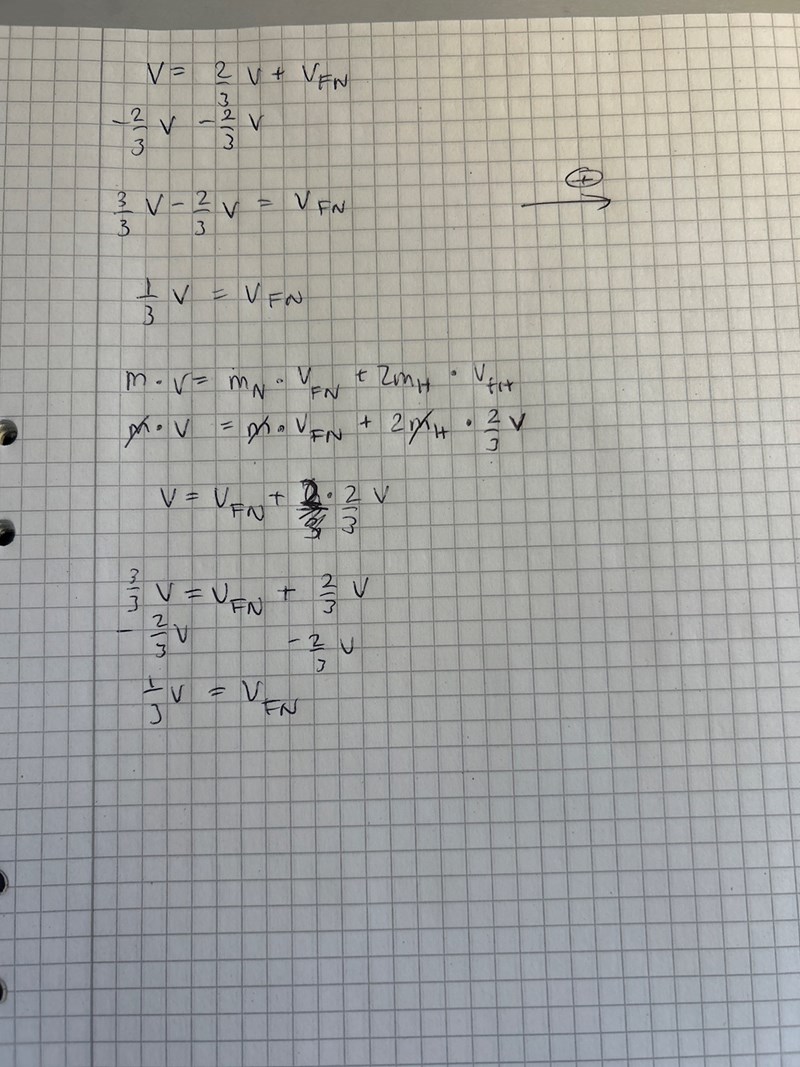 V = 2/3 V + V_FN
-2/3 V -2/3 V
⊕
3/3 V - 2/3 V = V_FN
1/3 V = V_FN
m · V = m_N · V_FN + 2m_H · V_fH
m · V = m · V_FN + 2m_H · 2/3 V
V = V_FN + · 2/3 V
3/3 V = V_FN + 2/3 V
- 2/3 V - 2/3 V
1/3 V = V_FN